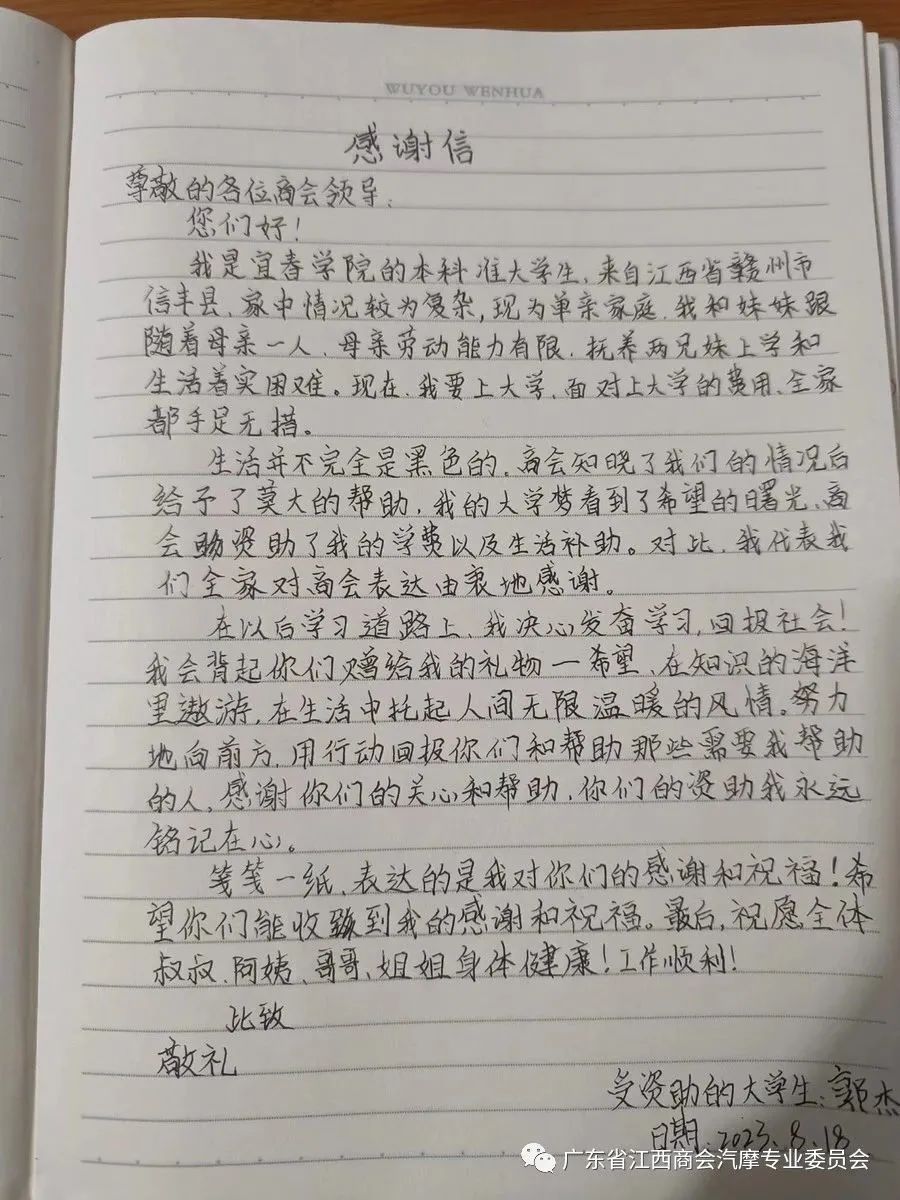 WUYOU WENHUA
感谢信
尊敬的各位商会领导:
您们好!
我是宜春学院的本科准大学生,来自江西省赣州市
信丰县,家中情况较为复杂,现为单亲家庭,我和妹妹跟
随着母亲一人,母亲劳动能力有限,抚养两兄妹上学和
生活着实困难。现在,我要上大学,面对上大学的费用,全家
都手足无措。
生活并不完全是黑色的,商会知晓了我们的情况后
给予了莫大的帮助,我的大学梦看到了希望的曙光,商
会资助了我的学费以及生活补助。对比,我代表我
们全家对商会表达由衷地感谢。
在以后学习道路上,我决心发奋学习,回报社会!
我会背起你们赠给我的礼物一希望,在知识的海洋
里遨游,在生活中托起人间无限温暖的风情。努力
地向前方,用行动回报你们和帮助那些需要我帮助
的人,感谢你们的关心和帮助,你们的资助我永远
铭记在心。
笺笺一纸,表达的是我对你们的感谢和祝福!希
望你们能收到我的感谢和祝福。最后,祝愿全体
叔叔、阿姨、哥哥、姐姐身体健康!工作顺利!
此致
敬礼
受资助的大学生:郭杰
日期:2023.8.18
广东省江西商会汽摩专业委员会